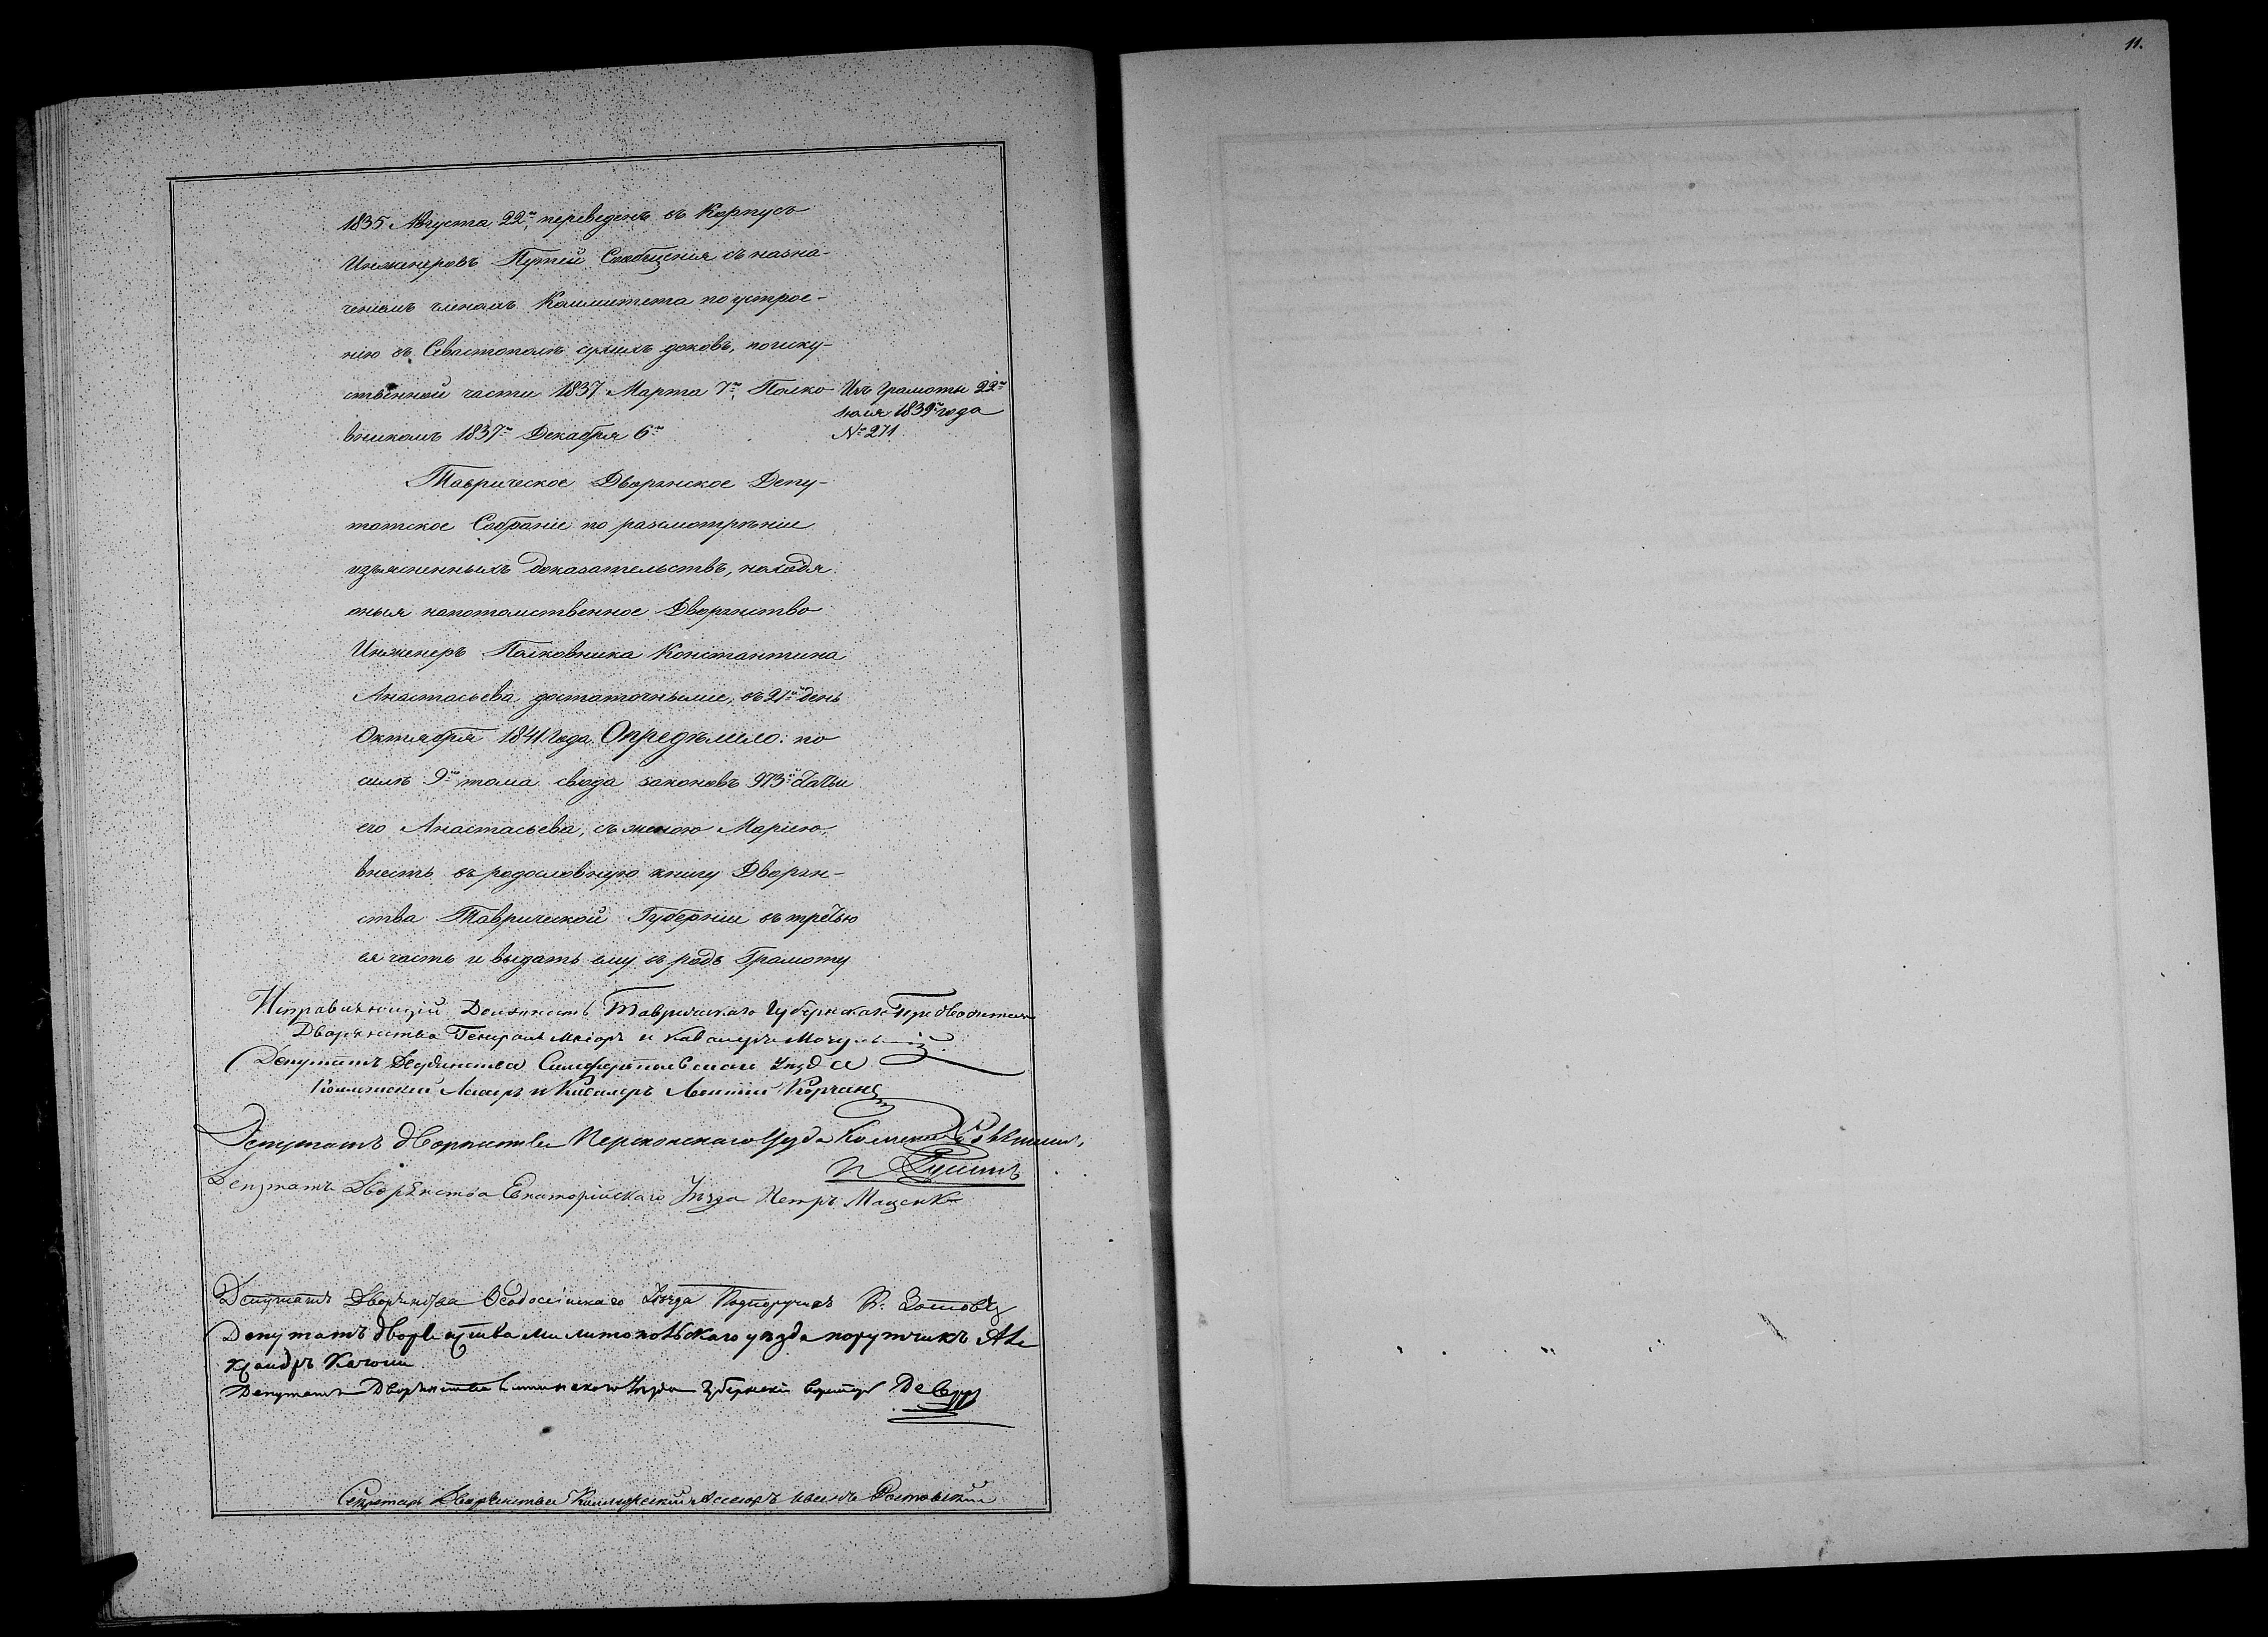 11.
1835 Августа 22го, переведенъ въ Корпусъ
Инженеровъ Путей Сообщенія съ назна-
ченіемъ членомъ Коммитета по устрое-
нію въ Севастополѣ сухихъ доковъ, по иску-
ственной части 1837 Марта 7го, Полко-
вникомъ 1837го Декабря 6го
Изъ Грамоты 22го
Іюля 1839го года
№ 271
Таврическое Дворянское Депу-
татское Собраніе по разсмотрѣніи
изъясненныхъ доказательствъ, находя
оныя на потомственное Дворянство
Инженеръ Полковника Константина
Анастасьева достаточными, въ 21й день
Октября 1841 года Опредѣлило: по
силѣ 9го тома свода законовъ 973й статьи
его Анастасьева, съ женою Маріею,
внесть въ родословную книгу Дворян-
ства Таврической Губерніи въ третью
ея часть и выдать ему въ родъ Грамоту
Исправляющій Должность Таврическаго Губернскаго Предводителя
Дворянства Генералъ Маіоръ и Кавалеръ
Депутатъ Дворянства Симферопольскаго Уѣзда
Коллежскій Ассесоръ и Кавалеръ
Депутатъ Дворянства Перекопскаго Уѣзда
Депутатъ Дворянства Евпаторійскаго Уѣзда Петръ
Депутатъ Дворянства Ѳеодосійскаго Уѣзда Подпоручикъ
Депутатъ Дворянства Мелитопольскаго уѣзда порутчикъ Але
ксандръ
Депутатъ Дворянства Уѣзда Губернскій
Секретарь Дворянства Коллежскій Ассесоръ Иванъ